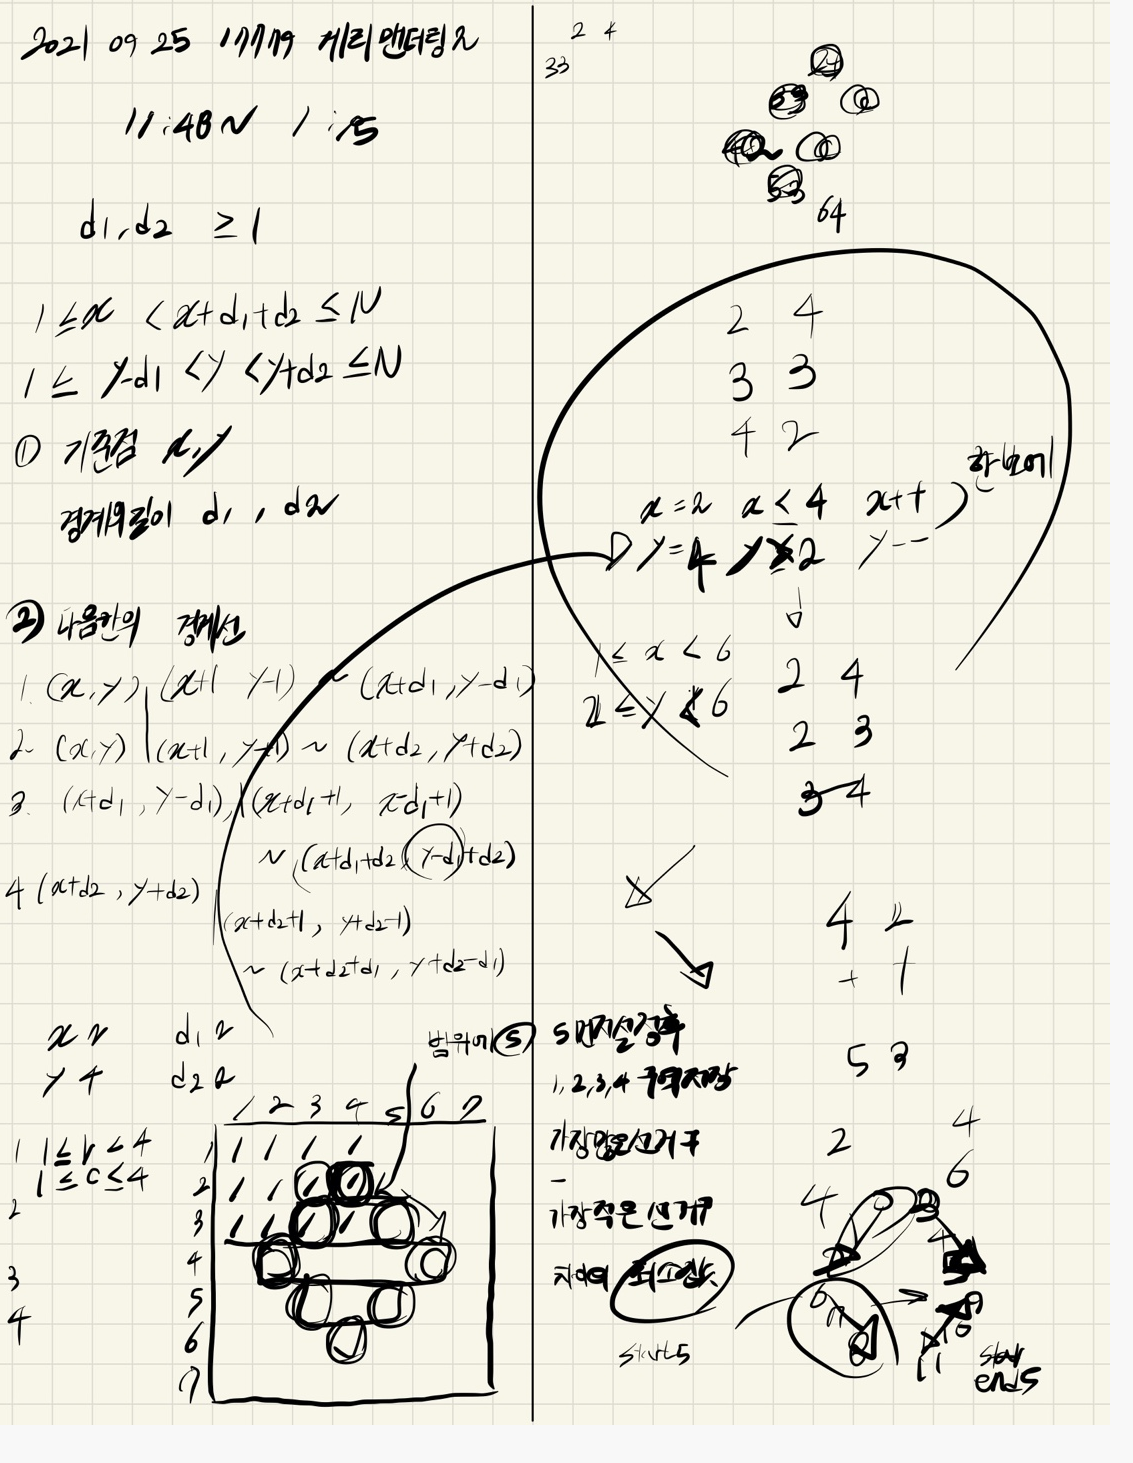 2021 09 25 17779 게리맨더링 2
11:48 ~ 1:15
d1, d2 ≥ 1
1 ≤ x < x+d1+d2 ≤ N
1 ≤ y-d1 < y < y+d2 ≤ N
① 기준점 x,y
경계의길이 d1, d2
② 다음칸의 경계선
1. (x,y), (x+1 y-1) ~ (x+d1, y-d1)
2. (x,y) (x+1, y+1) ~ (x+d2, y+d2)
3. (x+d1, y-d1), (x+d1+1, x-d1+1)
~ (x+d1+d2, y-d1+d2)
4 (x+d2, y+d2)
(x+d2+1, y+d2-1)
~ (x+d2+d1, y+d2-d1)
x 2 d1 2
y 4 d2 2
범위에 ⑤
1 2 3 4 5 6 7
1 1≤r<4
1≤c≤4
2
3
4
1 1 1 1 1
2 1 1
3 1 1
4
5
6
7
2 4
33
64
2 4
3 3
4 2
한번에
x=2 x<4 x++
y=4 y 2 y--
1 ≤ x < 6
≤ y 6
2 4
2 3
3 4
4 2
+ 1
5 3
5먼저설정후
1,2,3,4 구역지정
가장많은선거구
-
가장적은선거구
차이의 최소값
2 4
4 6
start5
end5